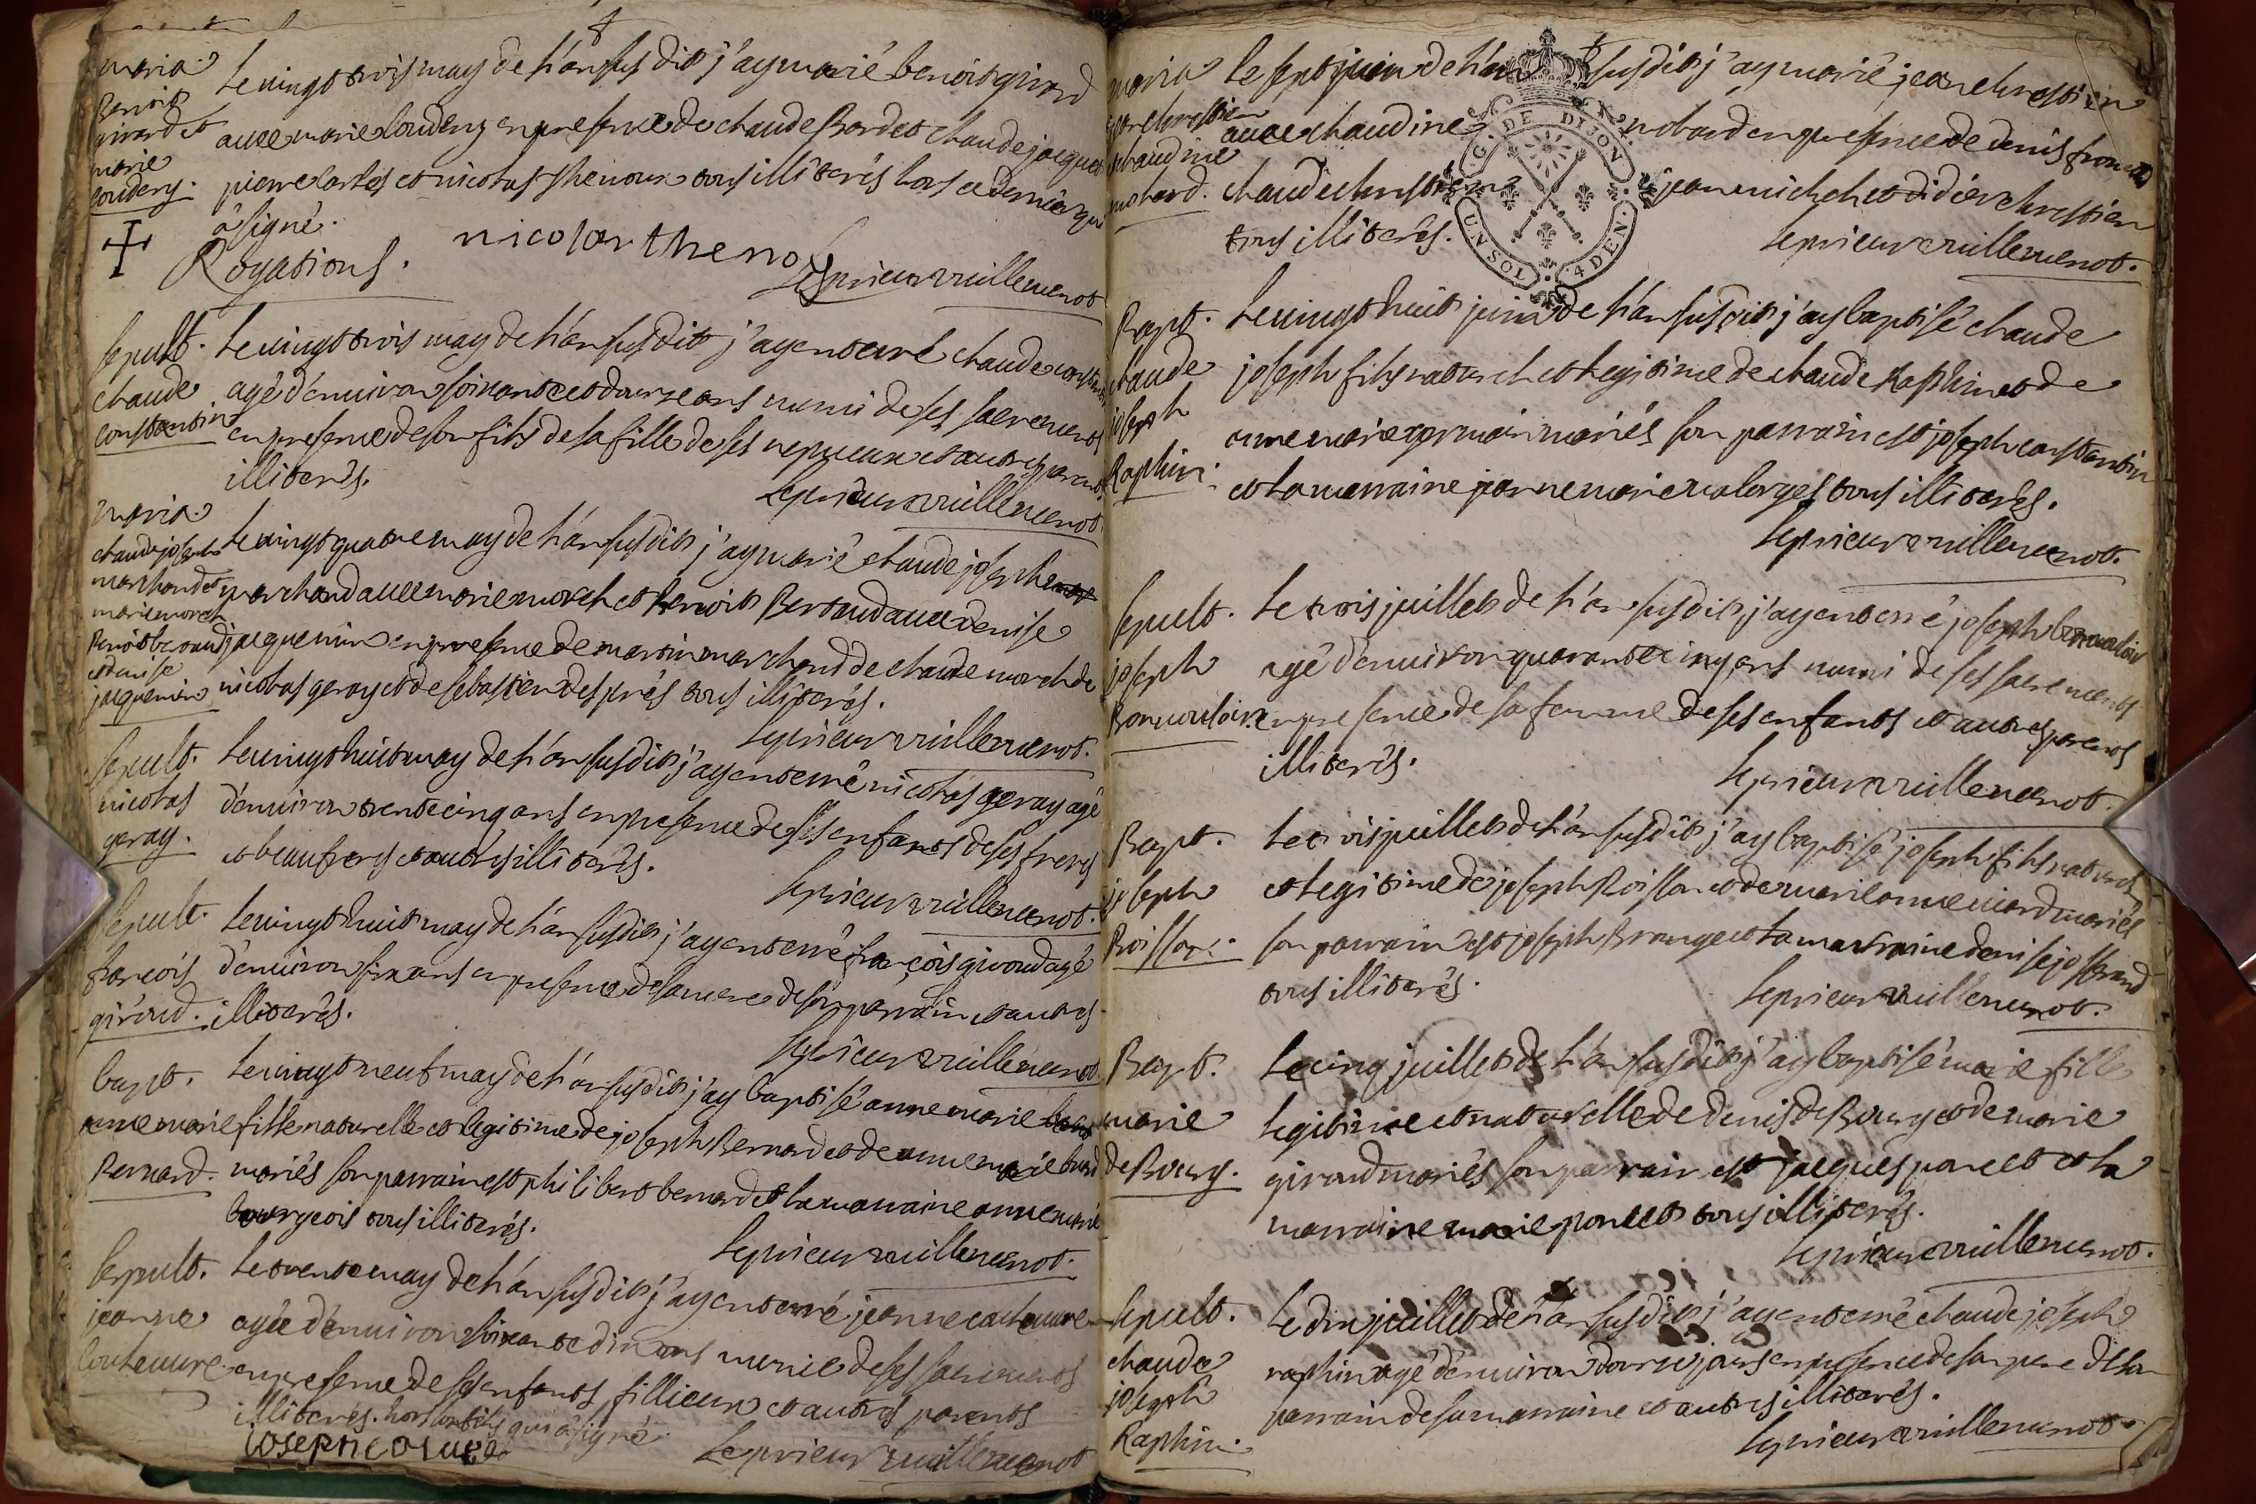 maria.
Benoit
girard et
marie
loudeny.
Le vingt trois may de l'an susdit j'ay marié benoit girard
avec marie loudeny en presence de claude Bardet claude jaquet
pierre lartes et nicolas thenoux tous illiterés hors ce dernier qui
a signé.
Rogations.
nicolas theno
Le prieur vuillemenot
sepult.
claude
constantin
Le vingt trois may de l'an susdit j'ay enterré claude constantin
agé d'environ soixante et douze ans muni de ses sacrements
en presence de son fils de sa fille de ses nepveux et autres parents
illiterés.
Le prieur vuillemenot
maria.
claude joseph
marchand et
marie morel
Benoit bertaud
et denise
jaquemin
Le vingt quatre may de l'an susdit j'ay marié claude joseph
marchand avec marie morel et benoit Bertaud avec denise
jaquemin en presence de martin marchand de claude morel de
nicolas geray et de sebastien després tous illiterés.
Le prieur vuillemenot.
sepult.
nicolas
geray.
Le vingt huit may de l'an susdit j'ay enterré nicolas geray agé
d'environ trente cinq ans en presence de ses enfants de ses freres
et beaufreres et autres illiterés.
Le prieur vuillemenot.
sepult.
françois
giroud.
Le vingt huit may de l'an susdit j'ay enterré françois giroud agé
d'environ six ans en presence de sa mere de son parrain et autres
illiterés.
Le prieur vuillemenot
bapt.
anne marie
Bernard.
Le vingt neuf may de l'an susdit j'ay baptisé anne marie
fille naturelle et legitime de joseph Bernard et de anne marie
mariés son parrain est philibert bernard et la marraine anne marie
bourgeois tous illiterés.
Le prieur vuillemenot.
sepult.
jeanne
couteure
Le trente may de l'an susdit j'ay enterré jeanne couteure
agée d'environ soixante dix ans munie de ses sacrements
en presence de ses enfants fillieux et autres parents
illiterés. hors son fils qui a signé.
Le prieur vuillemenot
maria
jean chrestien
claudine
mobard.
Le sept juin de l'an susdit j'ay marié jean chrestien
avec claudine mobard en presence de denis
claude chrestien jean michel et didier chrestien
tous illiterés.
Le prieur vuillemenot.
G. DE DIJON
UN SOL. 4 DEN.
Bapt.
claude
joseph
Raphin.
Le vingt huit juin de l'an susdit j'ay baptisé claude
joseph fils naturel et legitime de claude Raphin et de
anne marie germain mariés son parrain est joseph constantin
et la marraine jeanne marie malarges tous illiterés.
Le prieur vuillemenot.
sepult.
joseph
Bonvouloir
Le trois juillet de l'an susdit j'ay enterré joseph bonvouloir
agé d'environ quarante cinq ans muni de ses sacrements
en presence de sa femme de ses enfants et autres parents
illiterés.
Le prieur vuillemenot.
Bapt.
joseph
Boisson.
Le trois juillet de l'an susdit j'ay baptisé joseph fils naturel
et legitime de joseph Boisson et de marie anne mariés
son parrain est joseph Brange et la marraine denise josserand
tous illiterés.
Le prieur vuillemenot.
Bapt.
marie
de Bourg.
Le cinq juillet de l'an susdit j'ay baptisé marie fille
legitime et naturelle de denis de Bourg et de marie
giraud mariés son parrain est jacques poncet et la
marraine marie poncet tous illiterés.
Le prieur vuillemenot.
sepult.
claude
joseph
Raphin.
Le dix juillet de l'an susdit j'ay enterré claude joseph
raphin agé d'environ douze jours en presence de son pere de son
parrain de sa marraine et autres illiterés.
Le prieur vuillemenot.